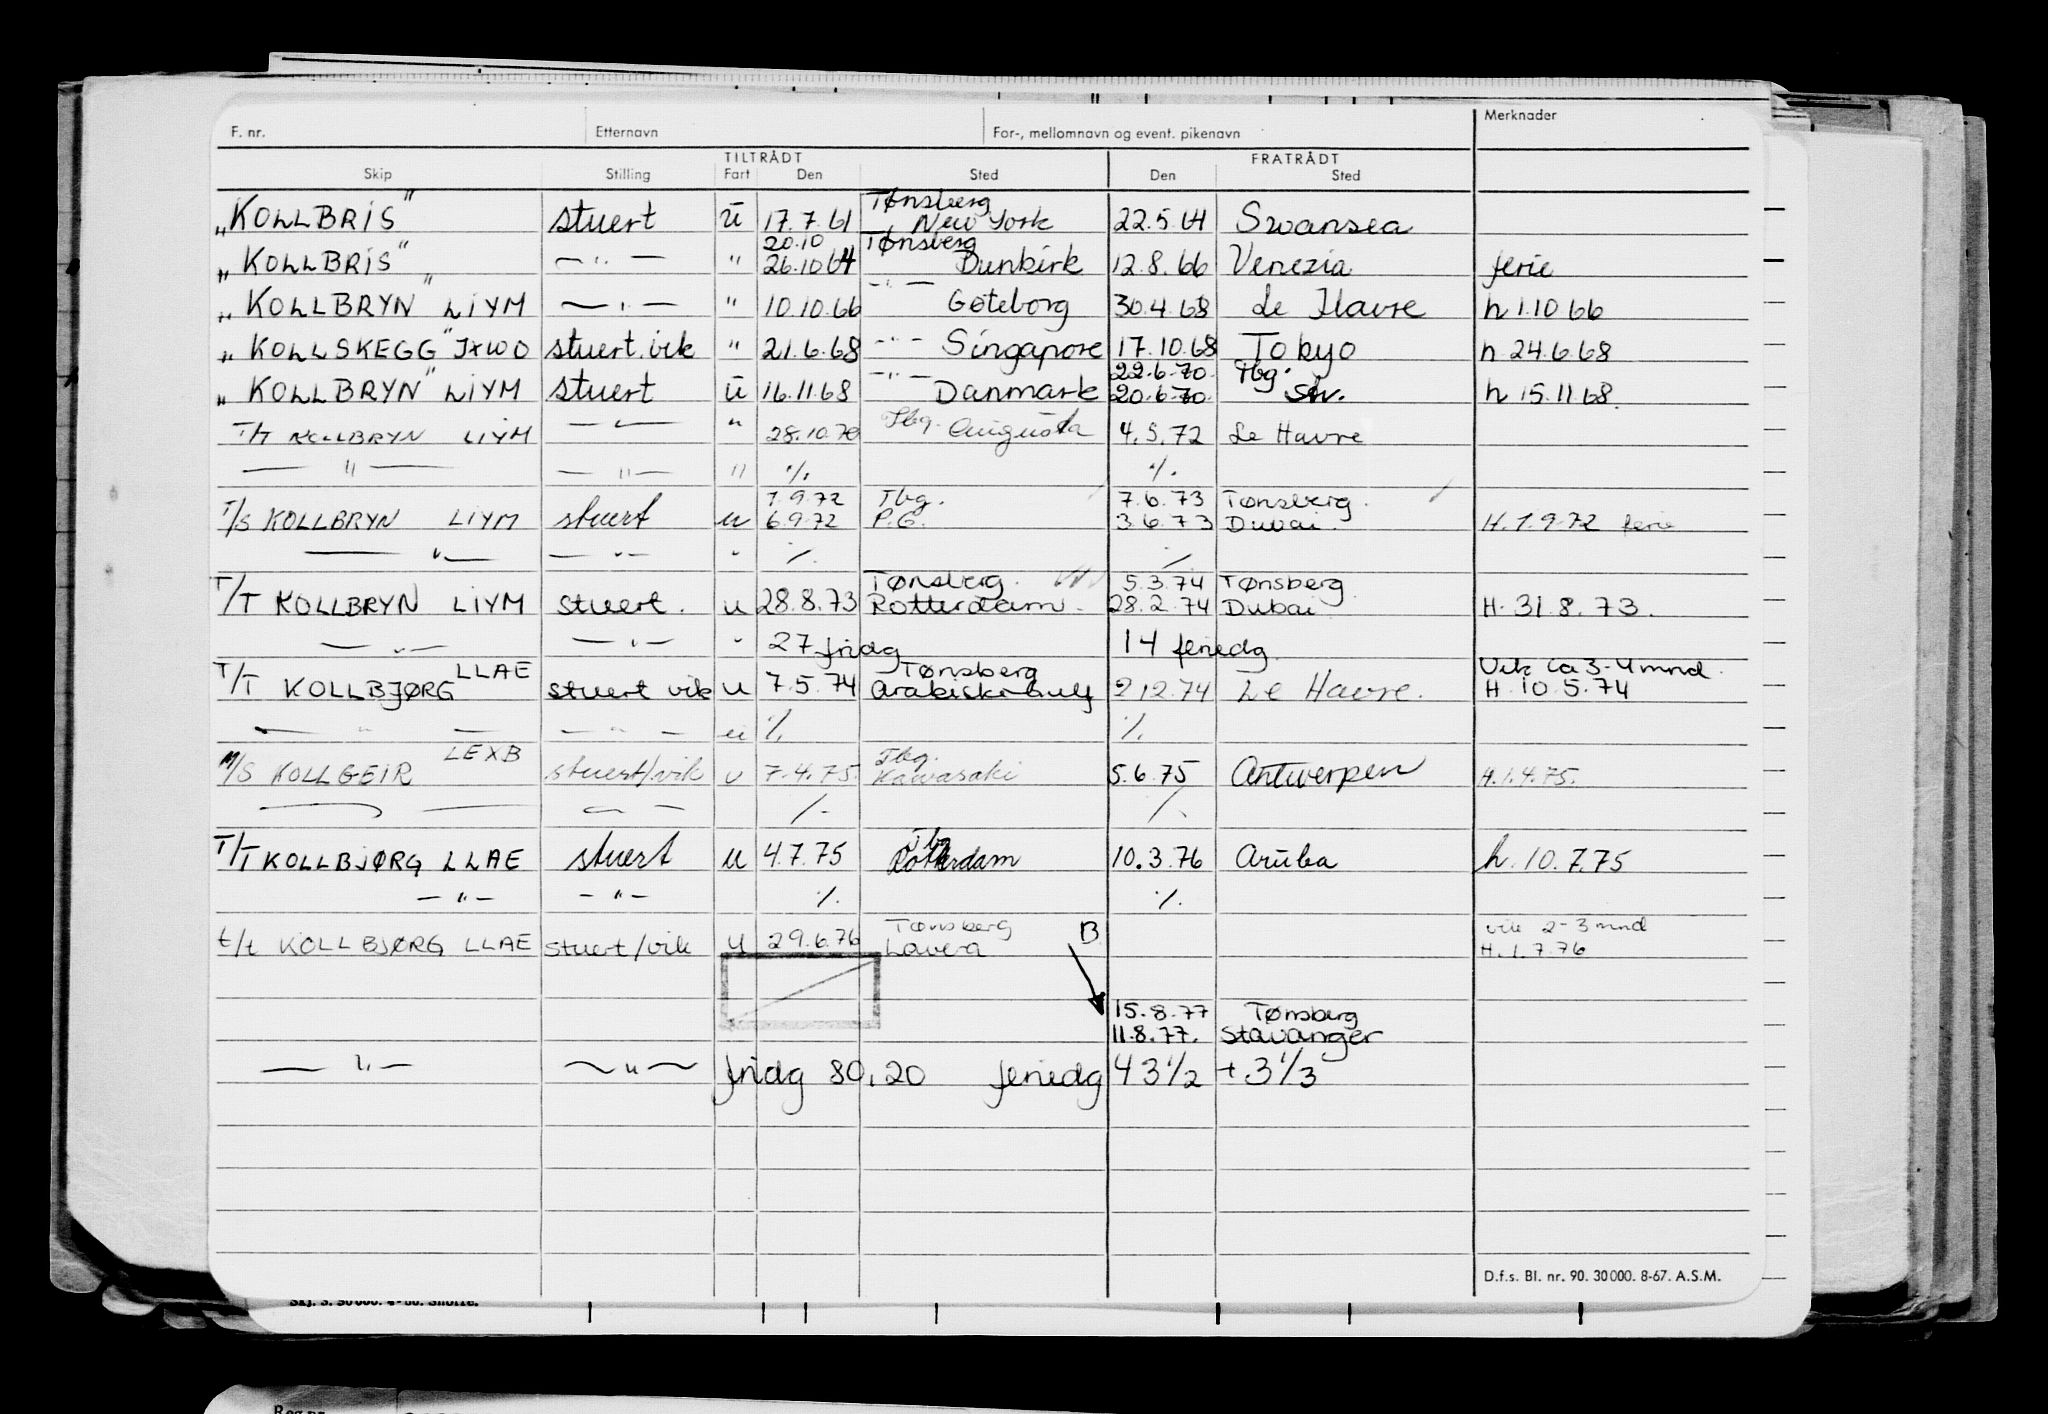 F. nr. Etternavn For-, mellomnavn og event. pikenavn Merknader
TILTRÅDT FRATRÅDT
Skip Stilling Fart Den Sted Den Sted
Tønsberg
„KOLLBRIS" stuert ū 17.7.61 New York 22.5.64 Swansea
20.10 Tønsberg
„KOLLBRIS" —"— " 26.10 64 Dunkirk 12.8.66 Venezia ferie
„KOLLBRYN" LIYM —"— " 10.10.66 —"— Gøteborg 30.4.68 Le Havre h 1.10 66
„KOLLSKEGG" JXWO stuert.vik " 21.6.68 —"— Singapore 17.10.68 Tokyo h 24.6.68
22.6.70. Tbg.
„KOLLBRYN" LIYM stuert ū 16.11.68 —"— Danmark 20.6.70. h 15.11.68.
T/T KOLLBRYN LIYM —"— " 28.10.70 Tbg. Augusta 4.5.72 Le Havre
—"— —"— " ./. ./.
7.9.72 Tbg. 7.6.73 Tønsberg.
T/S KOLLBRYN LIYM stuert u 6.9.72 P.G. 3.6.73 Dubai. H.1.9.72 ferie
—"— —"— " ./. ./.
Tønsberg. 5.3.74 Tønsberg
T/T KOLLBRYN LIYM stuert. u 28.8.73 Rotterdam. 28.2.74 Dubai H. 31.8.73.
—"— —"— " 27 fridg 14 feriedg
LLAE Tønsberg Vik ca 3-4 mnd.
T/T KOLLBJØRG stuert vik u 7.5.74 Arabiske Gulf 2.12.74 Le Havre. H. 10.5.74
— " — — " — u ./. ./.
LEXB Tbg.
M/S KOLLGEIR stuert/vik u 7.4.75. Kawasaki 5.6.75 Antwerpen H.1.4.75.
./. ./.
Tbg
T/T KOLLBJØRG LLAE stuert u 4.7.75 Rotterdam 10.3.76 Aruba h. 10.7.75
—"— —"— ./. ./.
Tønsberg B vik 2-3 mnd
t/t KOLLBJØRG LLAE stuert/vik u 29.6.76 Lavera H.1.7.76
15.8.77 Tønsberg
11.8.77. Stavanger
—"— —"— fridg 80,20 feriedg 43 1/2 + 3 1/3
D.f.s. Bl. nr. 90. 30 000. 8-67. A.S.M.